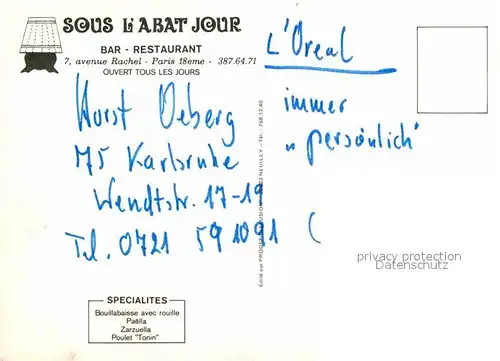 SOUS L'ABAT JOUR
BAR - RESTAURANT
7, avenue Rachel - Paris 18eme - 387.64.71
OUVERT TOUS LES JOURS
Horst Oeberg
75 Karlsruhe
Wendtstr. 17-19
Tel. 0721 591091 (
L'Oreal
immer
„persönlich"
privacy protection
Datenschutz
SPECIALITES
Bouillabaisse avec rouille
Paëlla
Zarzuella
Poulet "Tonin"
Edité par
NEUILLY - Tél. 758.12.40